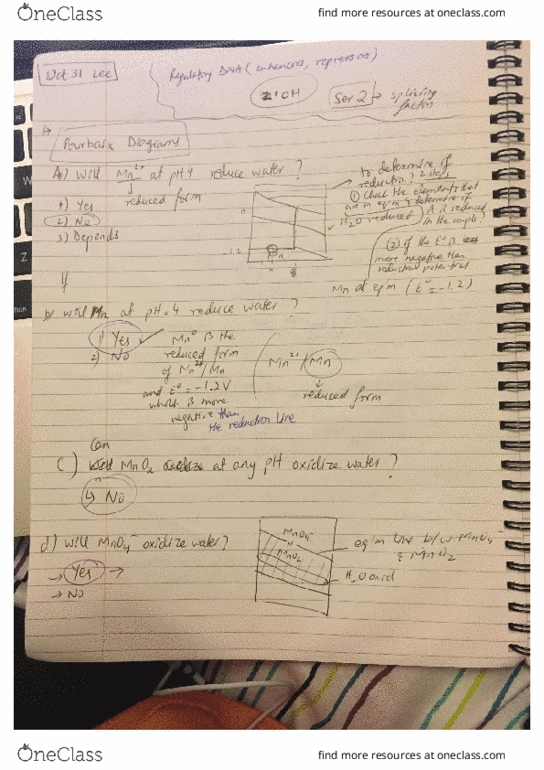 OneClass
find more resources at oneclass.com
Oct 31 Lec
Regulatory DNA (enhancers, repressors)
Ser 2 → splicing
factors
Pourbaix Diagrams
A) Will Mn²⁺ at pH 4 reduce water?
reduced form
1) Yes
2) No
3) Depends
to determine if
reduction? 2 steps
① Check the elements that
are in eq'm & determine if
A is reduced
in the couple?
H₂O reduced
② if the E° is
more negative than
reduction potential
-1.2
Mn
Mn at eqm (E° = -1.2)
b) will Mn at pH = 4 reduce water?
1) Yes
2) No
Mn⁰ is the
reduced form
of Mn²⁺/Mn
and E° = -1.2V
which is more
negative than
the reduction line
Mn²⁺/Mn
reduced form
Can
c) Will MnO₂ oxidize at any pH oxidize water?
↳ No
d) will MnO₄⁻ oxidize water?
→ Yes →
→ No
MnO₄⁻
MnO₂
eq'm line b/w MnO₄⁻
& MnO₂
H₂O oxid
OneClass
find more resources at oneclass.com